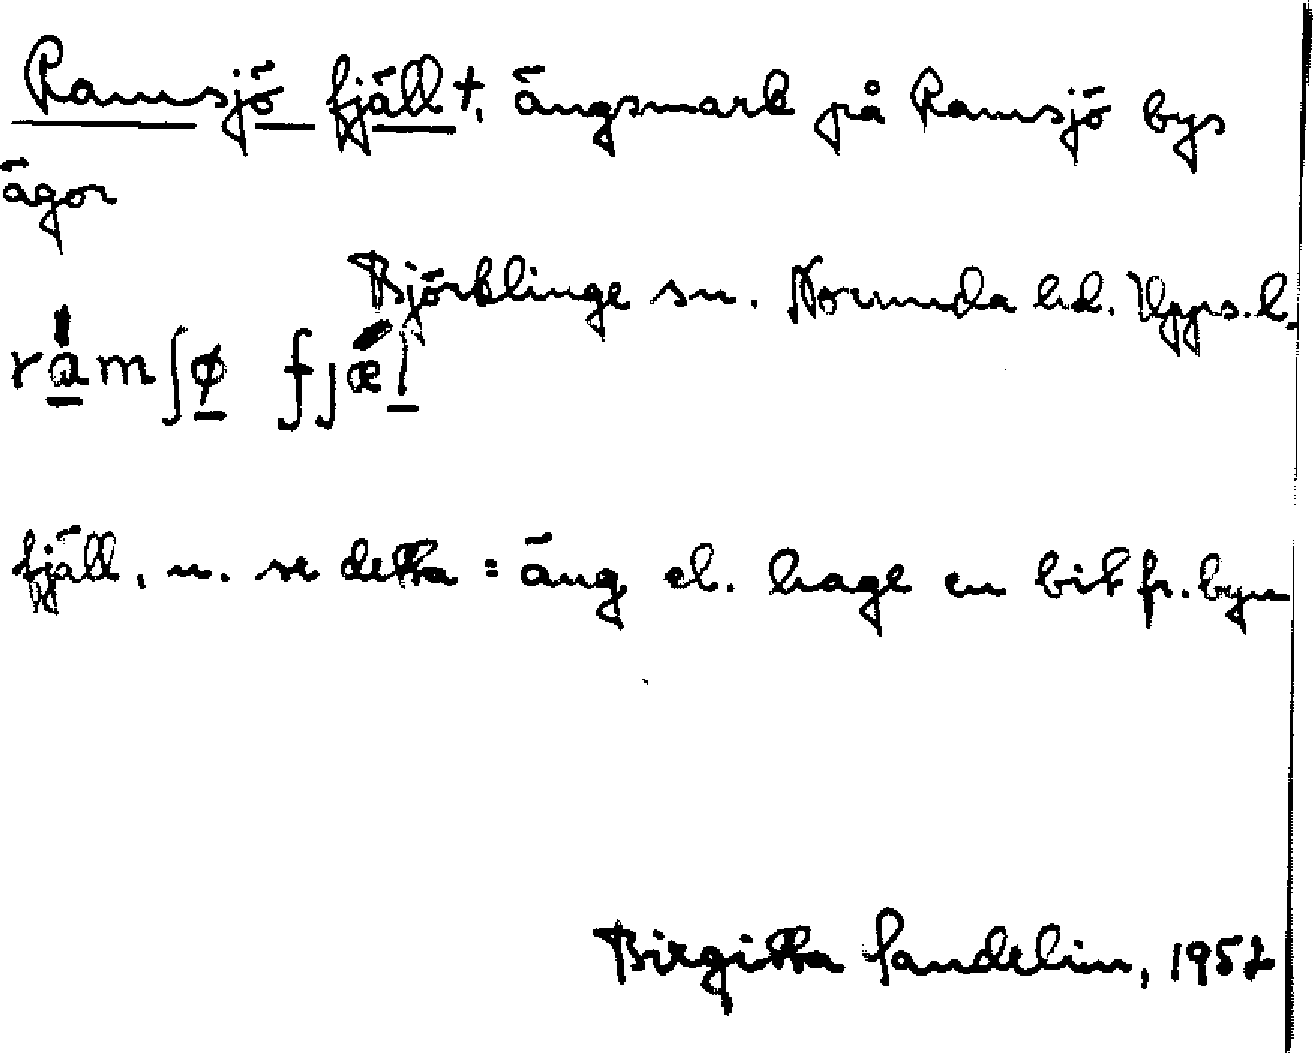 Ramsjö fjäll †, ängsmark på Ramsjö bys
ägor
Björklinge sn. Norunda hd. Upps. l.
ràmʃø̱ fjǽl̲
fjäll, n. se detta = äng el. hage en bit fr. byn
Birgitta Sandelin, 1952